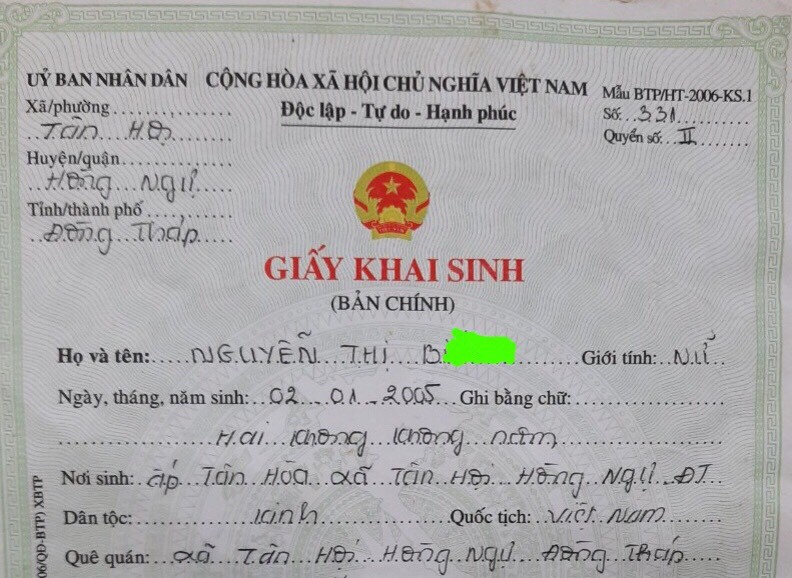 UỶ BAN NHÂN DÂN
Xã/phường
Tân Hội
Huyện/quận
Hồng Ngự
Tỉnh/thành phố
Đồng Tháp
CỘNG HÒA XÃ HỘI CHỦ NGHĨA VIỆT NAM
Độc lập - Tự do - Hạnh phúc
Mẫu BTP/HT-2006-KS.1
Số: 331
Quyển số: II
GIẤY KHAI SINH
(BẢN CHÍNH)
Họ và tên: NGUYỄN THỊ Giới tính: Nữ
Ngày, tháng, năm sinh: 02-01-2005 Ghi bằng chữ:
Hai không không năm
Nơi sinh: ấp Tân Hòa xã Tân Hội Hồng Ngự ĐT
Dân tộc: kinh Quốc tịch: Việt Nam
Quê quán: xã Tân Hội Hồng Ngự Đồng Tháp
06/QĐ-BTP) XBTP